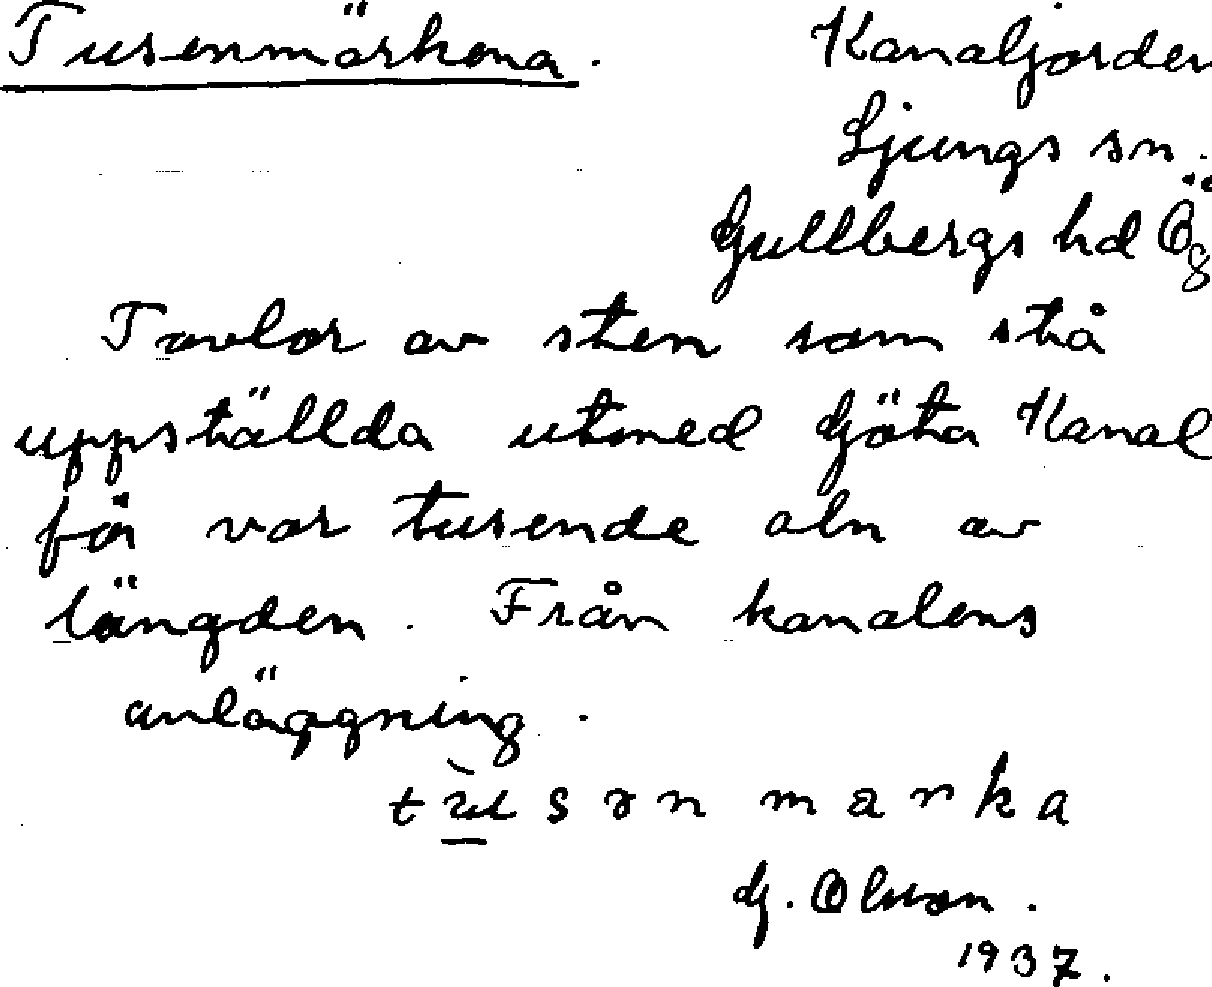 Tusenmärkena.
Kanaljorden
Ljungs sn.
Gullbergs hd Ög
Tavlor av sten som stå
uppställda utmed Göta Kanal
för var tusende aln av
längden. Från kanalens
anläggning.
tùsən marka
G. Olsson.
1937.